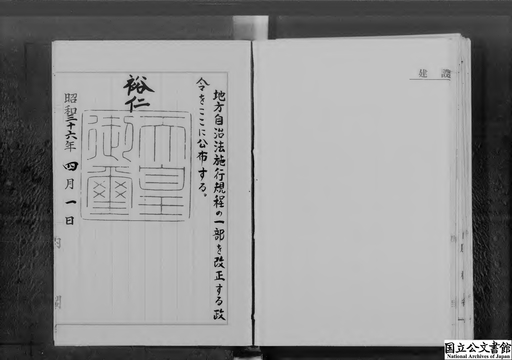 地方自治法施行規程の一部を改正する政
令をここに公布する。
裕仁
天皇
御璽
昭和三十六年四月一日
建設
国立公文書館
National Archives of Japan